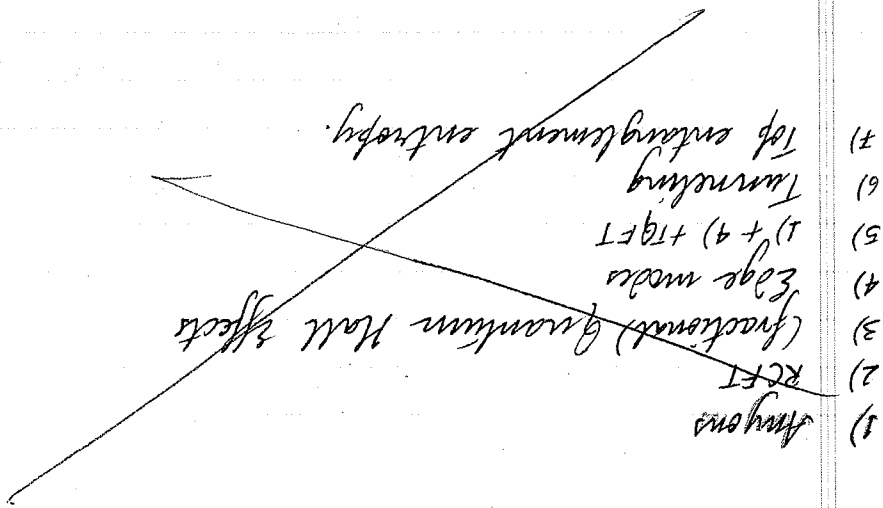 1) Anyons
2) RCFT
3) (fractional) Quantum Hall Effects
4) Edge modes
5) 1) + 4) + TQFT
6) Tunneling
7) Top entanglement entropy.